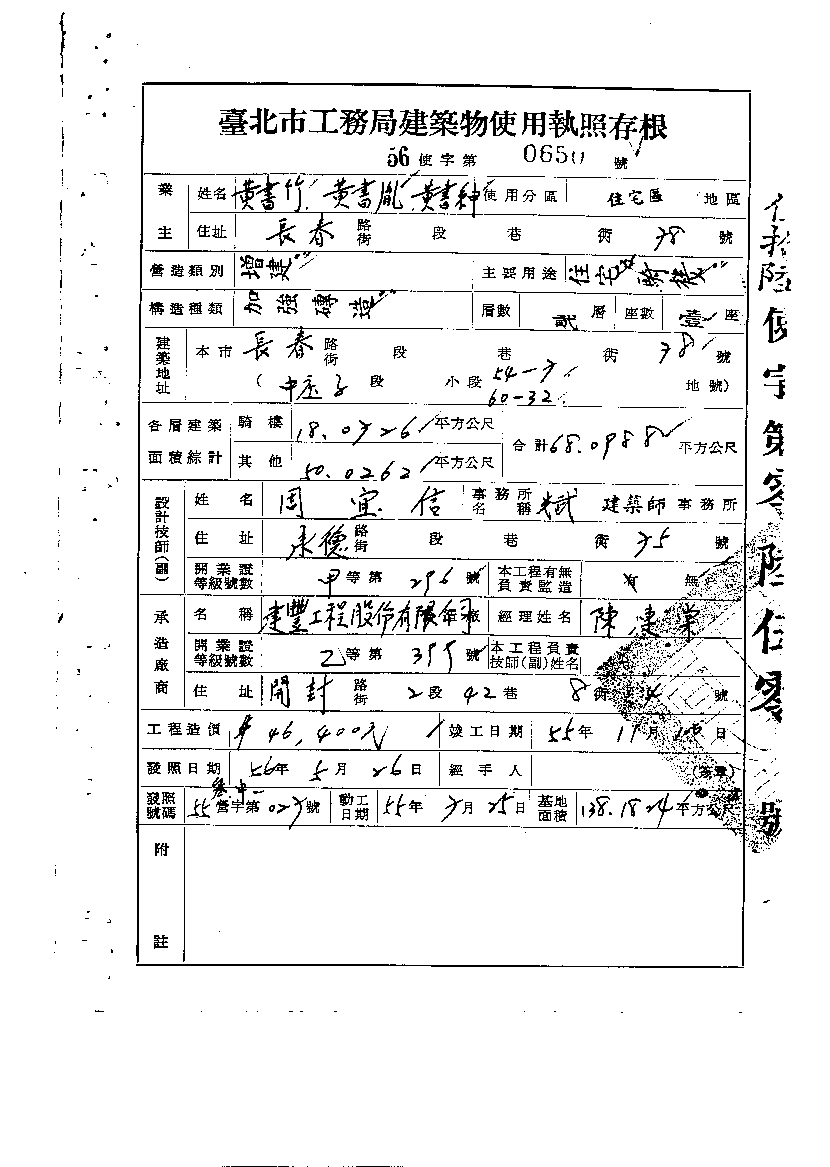 臺北市工務局建築物使用執照存根
56 使字第 0650 號
業主 姓名 黃書竹 黃書胤 黃書紳 使用分區 住宅區 地區
住址 長春 路街 段 巷 衖 78 號
營造類別 增建 主要用途 住宅及騎樓
構造種類 加強磚造 層數 貳 層 座數 壹 座
建築地址 本市 長春 路街 段 巷 衖 78 號
( 中庄子 段 小段 54-7 60-32 地號)
各層建築面積綜計 騎樓 18.0726 平方公尺 合計 68.0988 平方公尺
其他 50.0262 平方公尺
設計技師(副) 姓名 周宜信 事務所名稱 建築師事務所
住址 永德 路街 段 巷 衖 75 號
開業證等級號數 甲 等第 296 號 本工程有無負責監造 有 無
承造廠商 名稱 建豐工程股份有限公司 廠 經理姓名 陳建業
開業證等級號數 乙 等第 399 號 本工程負責技師(副)姓名
住址 開封 路街 2 段 42 巷 8 衖 號
工程造價 46,400元 竣工日期 55年 11月 日
發照日期 56年 5月 26日 經手人 (簽章)
發照號碼 55 營字第 027 號 動工日期 55年 7月 25日 基地面積 138.1824 平方公尺
附註
伍拾陸使字第零陸伍零號